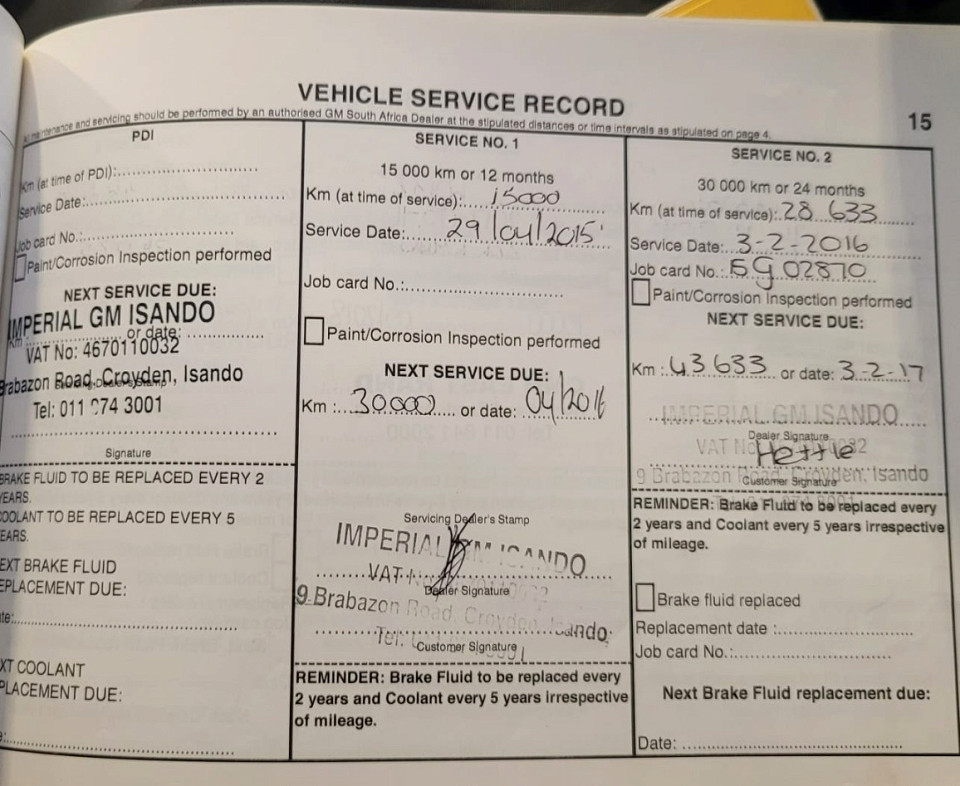 VEHICLE SERVICE RECORD
15
All maintenance and servicing should be performed by an authorised GM South Africa Dealer at the stipulated distances or time intervals as stipulated on page 4.
PDI
Km (at time of PDI):
Service Date:
Job card No.:
Paint/Corrosion Inspection performed
NEXT SERVICE DUE:
IMPERIAL GM ISANDO
Km or date:
VAT No: 4670110032
Brabazon Road, Croyden, Isando
Tel: 011 974 3001
Signature
BRAKE FLUID TO BE REPLACED EVERY 2
YEARS.
COOLANT TO BE REPLACED EVERY 5
EARS.
EXT BRAKE FLUID
EPLACEMENT DUE:
te:
XT COOLANT
PLACEMENT DUE:
SERVICE NO. 1
15 000 km or 12 months
Km (at time of service): 15000
Service Date: 29/04/2015
Job card No.:
Paint/Corrosion Inspection performed
NEXT SERVICE DUE:
Km : 30000 or date: 04/2016
Servicing Dealer's Stamp
IMPERIAL GM ISANDO
VAT No
Dealer Signature
9 Brabazon Road, Croyden, Isando
Tel:
Customer Signature
REMINDER: Brake Fluid to be replaced every
2 years and Coolant every 5 years irrespective
of mileage.
SERVICE NO. 2
30 000 km or 24 months
Km (at time of service): 28 633
Service Date: 3-2-2016
Job card No.: 5G 02870
Paint/Corrosion Inspection performed
NEXT SERVICE DUE:
Km : 43 633 or date: 3-2-17
IMPERIAL GM ISANDO
Dealer Signature
VAT No
Hettie
9 Brabazon Road, Croyden, Isando
Customer Signature
REMINDER: Brake Fluid to be replaced every
2 years and Coolant every 5 years irrespective
of mileage.
Brake fluid replaced
Replacement date :
Job card No.:
Next Brake Fluid replacement due:
Date: